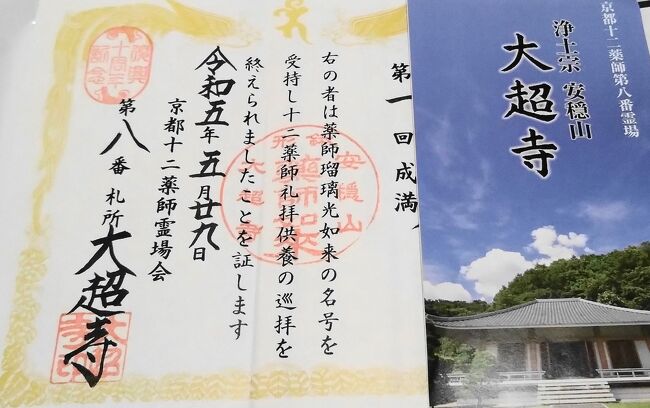 第一回成満
右の者は薬師瑠璃光如来の名号を
受持し十二薬師礼拝供養の巡拝を
終えられましたことを証します
令和五年五月廿九日
京都十二薬師霊場会
第八番札所大超寺
京都十二薬師第八番霊場
浄土宗 安穏山
大超寺